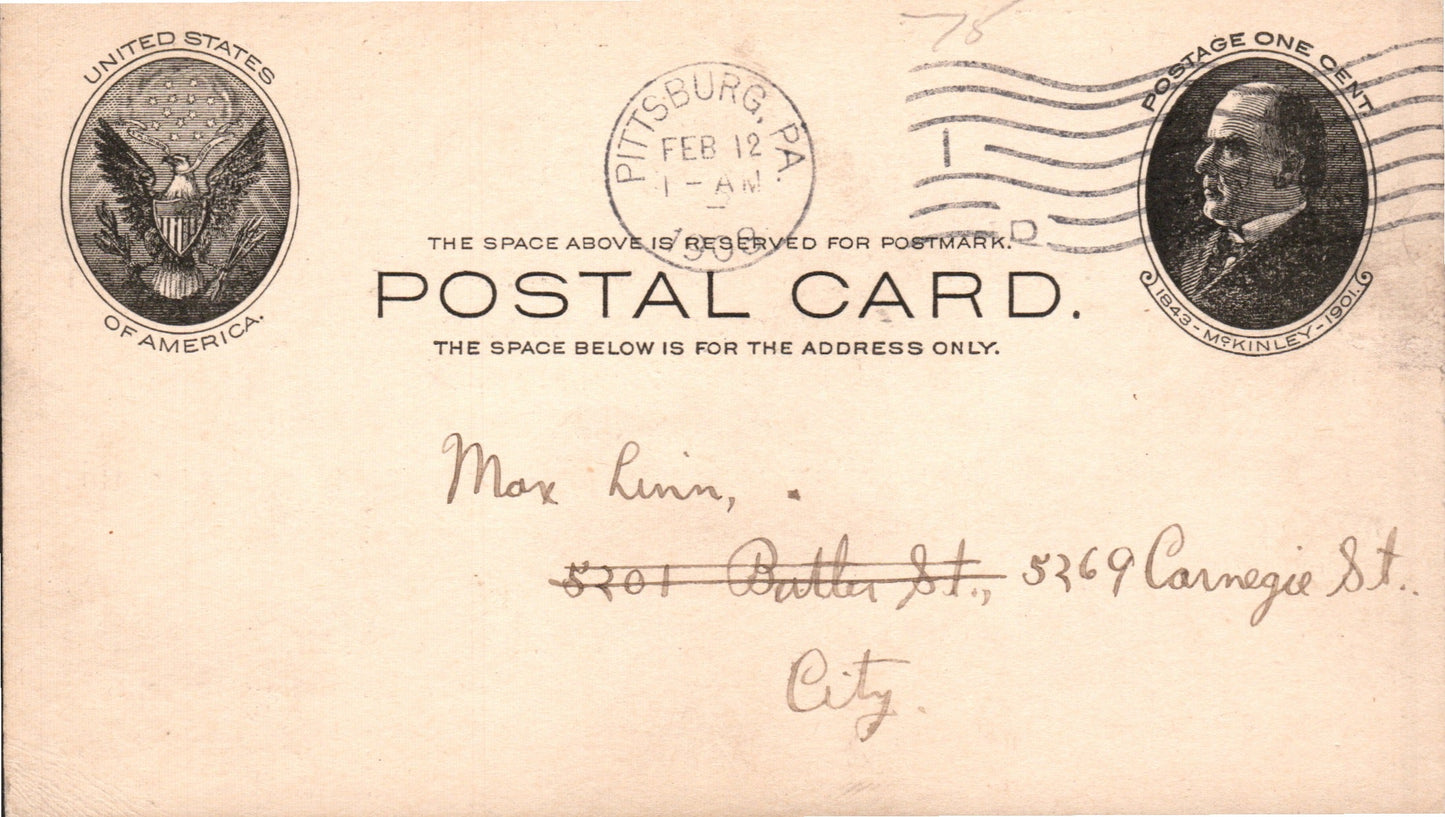 75
UNITED STATES
OF AMERICA.
PITTSBURG, PA.
FEB 12
1-AM
1908
1
D
POSTAGE ONE CENT.
1843-McKINLEY-1901.
THE SPACE ABOVE IS RESERVED FOR POSTMARK.
POSTAL CARD.
THE SPACE BELOW IS FOR THE ADDRESS ONLY.
Max Linn,
5201 Butler St., 5269 Carnegie St.
City.